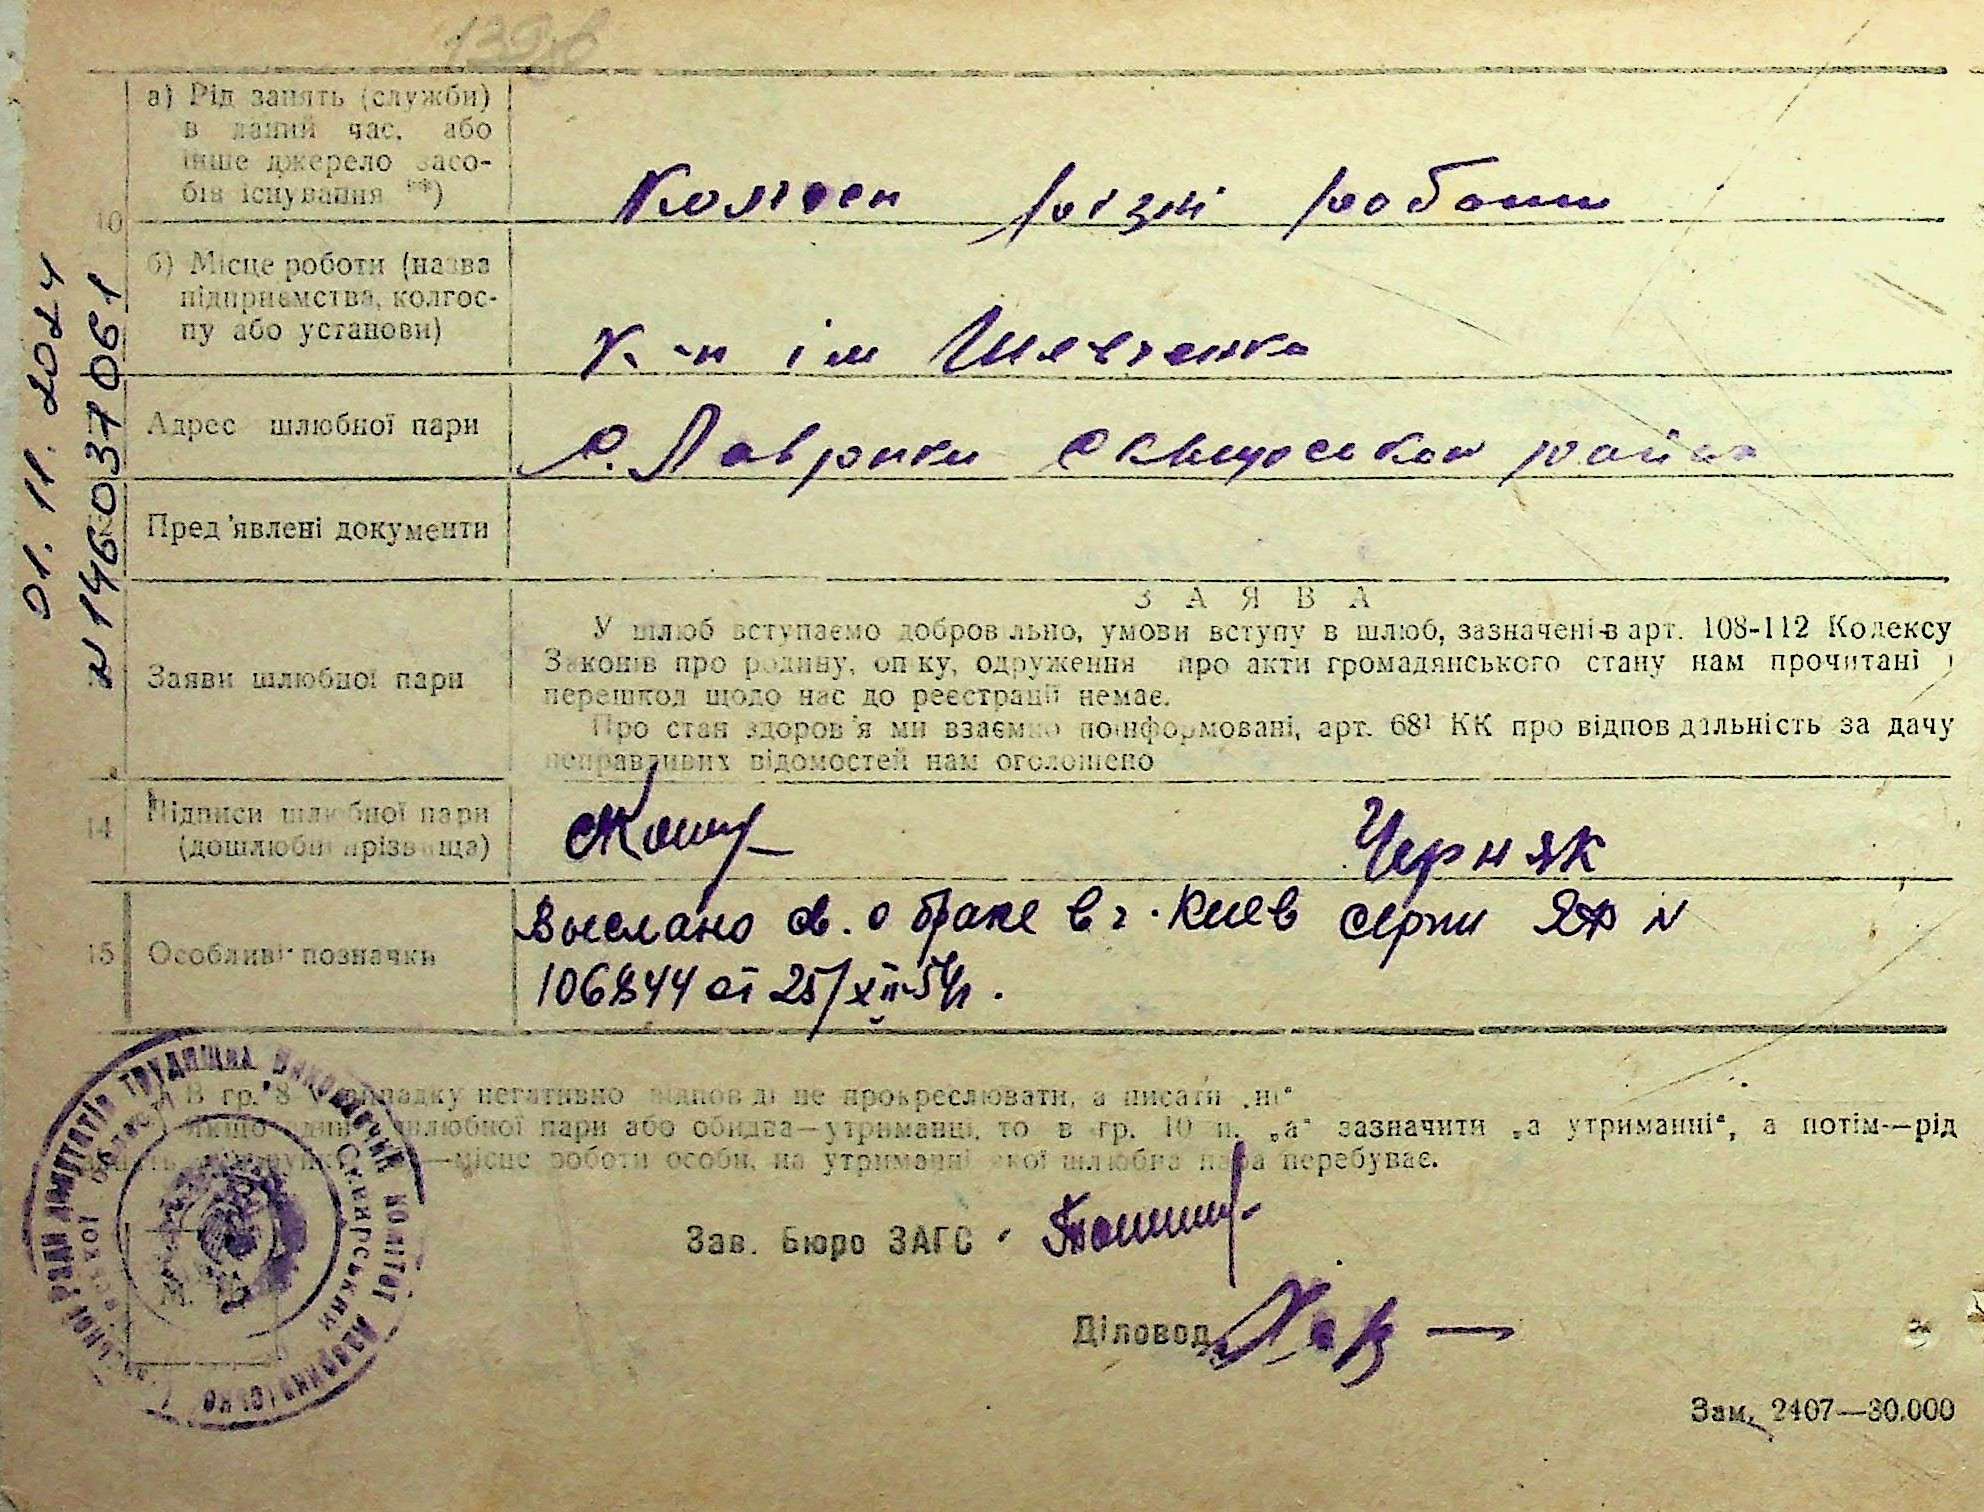 а) Рід занять (служби)
в даний час, або
інше джерело засо-
бів існування **)
різні роботи
10
б) Місце роботи (назва
підприємства, колгос-
пу або установи)
к-п ім Шевченка
Адрес шлюбної пари
с. Лаврики Сквирськом район
Пред'явлені документи
ЗАЯВА
Заяви шлюбної пари
У шлюб вступаємо добров льно, умови вступу в шлюб, зазначені в арт. 108-112 Кодексу
Законів про родину, оп ку, одруження про акти громадянського стану нам прочитані і
перешкод щодо нас до реєстрації немає.
Про стан здоров'я ми взаємно поінформовані, арт. 68¹ КК про відпов дальність за дачу
неправдивих відомостей нам оголошено
14
Підписи шлюбної пари
(дошлюбні прізвища)
Черняк
15
Особливі позначки
Выслано св. о браке в г. Киев серии ЯР N
106844 от 25/XII-54г.
В гр. 8 у випадку негативно відпов ді не прокреслювати, а писати „ні"
якщо один шлюбної пари або обидва—утриманці, то в гр. 10 п. „а" зазначити „а утриманні", а потім—рід
—місце роботи особи, на утриманні якої шлюбна пара перебуває.
Зав. Бюро ЗАГС
Діловод
М.
Виконавчий комітет Лаврик
ради депутатів трудящих
Сквирський
області
Зам. 2407—30.000
01.11.2024
N 146037061